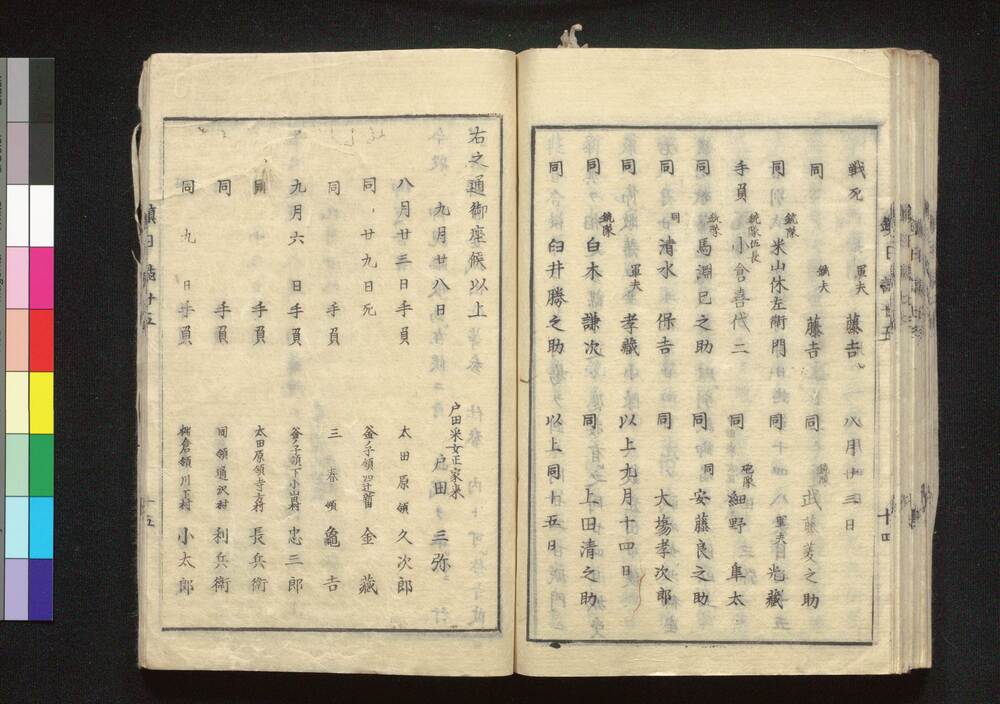 戦死 軍夫 藤吉 八月廿三日
同 鐵夫 藤吉 同 武藤菱之助
同 銃隊 米山休左衛門 同 軍夫 光藏
手負 銃隊伍長 小倉喜代二 同 砲隊 細野隼太
同 銃隊 馬淵巳之助 同 同 安藤良之助
同 同 清水保吉 同 大塲孝次郎
同 軍夫 孝藏 以上九月十四日
同 銃隊 白木謙次 同 上田清之助
同 臼井勝之助 以上同十五日
十四
右之通御座候以上
九月廿八日 戸田采女正家来 戸田三弥
八月廿三日手負 太田原領 久次郎
同、廿九日死 釜子領 金藏
同 手負 三春領 亀吉
九月六日手負 釜子領下小山村 忠三郎
同 手負 太田原領寺方村 長兵衛
同 手負 同領道沢村 利兵衛
同九日手負 棚倉領川下村 小太郎
鎮日誌廿五
十五